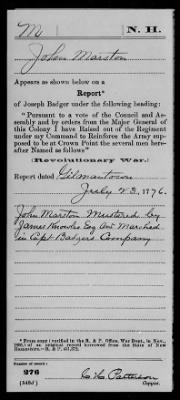 M N. H.
John Marston
Appears as shown below on a
Report*
of Joseph Badger under the following heading:
"Pursuant to a vote of the Council and As-
sembly and by orders from the Major General of
this Colony I have Raised out of the Regiment
under my Command to Reinforce the Army sup-
posed to be at Crown Point the several men here-
after Named as follows"
(Revolutionary War.)
Report dated Gilmantown
July 23, 1776.
John Marston Mustered by
James Knowles Esq and Marched
in Capt Badgers Company
* From copy (verified in the R. & P. Office, War Dept., in Nov.,
of an original record borrowed from the State of New
Hampshire.—R. & P.
Number of record:
276
C. L. Patterson
Copyer.